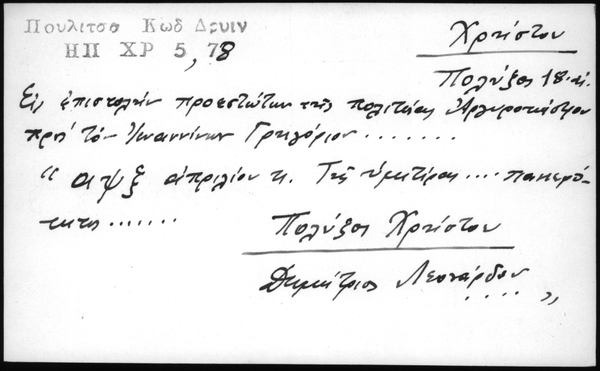 Πουλιτσα Κωδ Δρυιν
ΗΠ ΧΡ 5, 78
Χρήστου
Πολύζος 18 αἰ.
Εἰς ἐπιστολὴν προεστώτων τῆς πολιτείας Ἀργυροκάστρου
πρὸς τὸν Ἰωαννίνων Γρηγόριον .......
"αψξ ἀπριλίου κ. Τῆς ὑμετέρας .... πανιερό-
τητος .......
Πολύζος Χρήστου
Δημήτριος Λεονάρδου
.... "